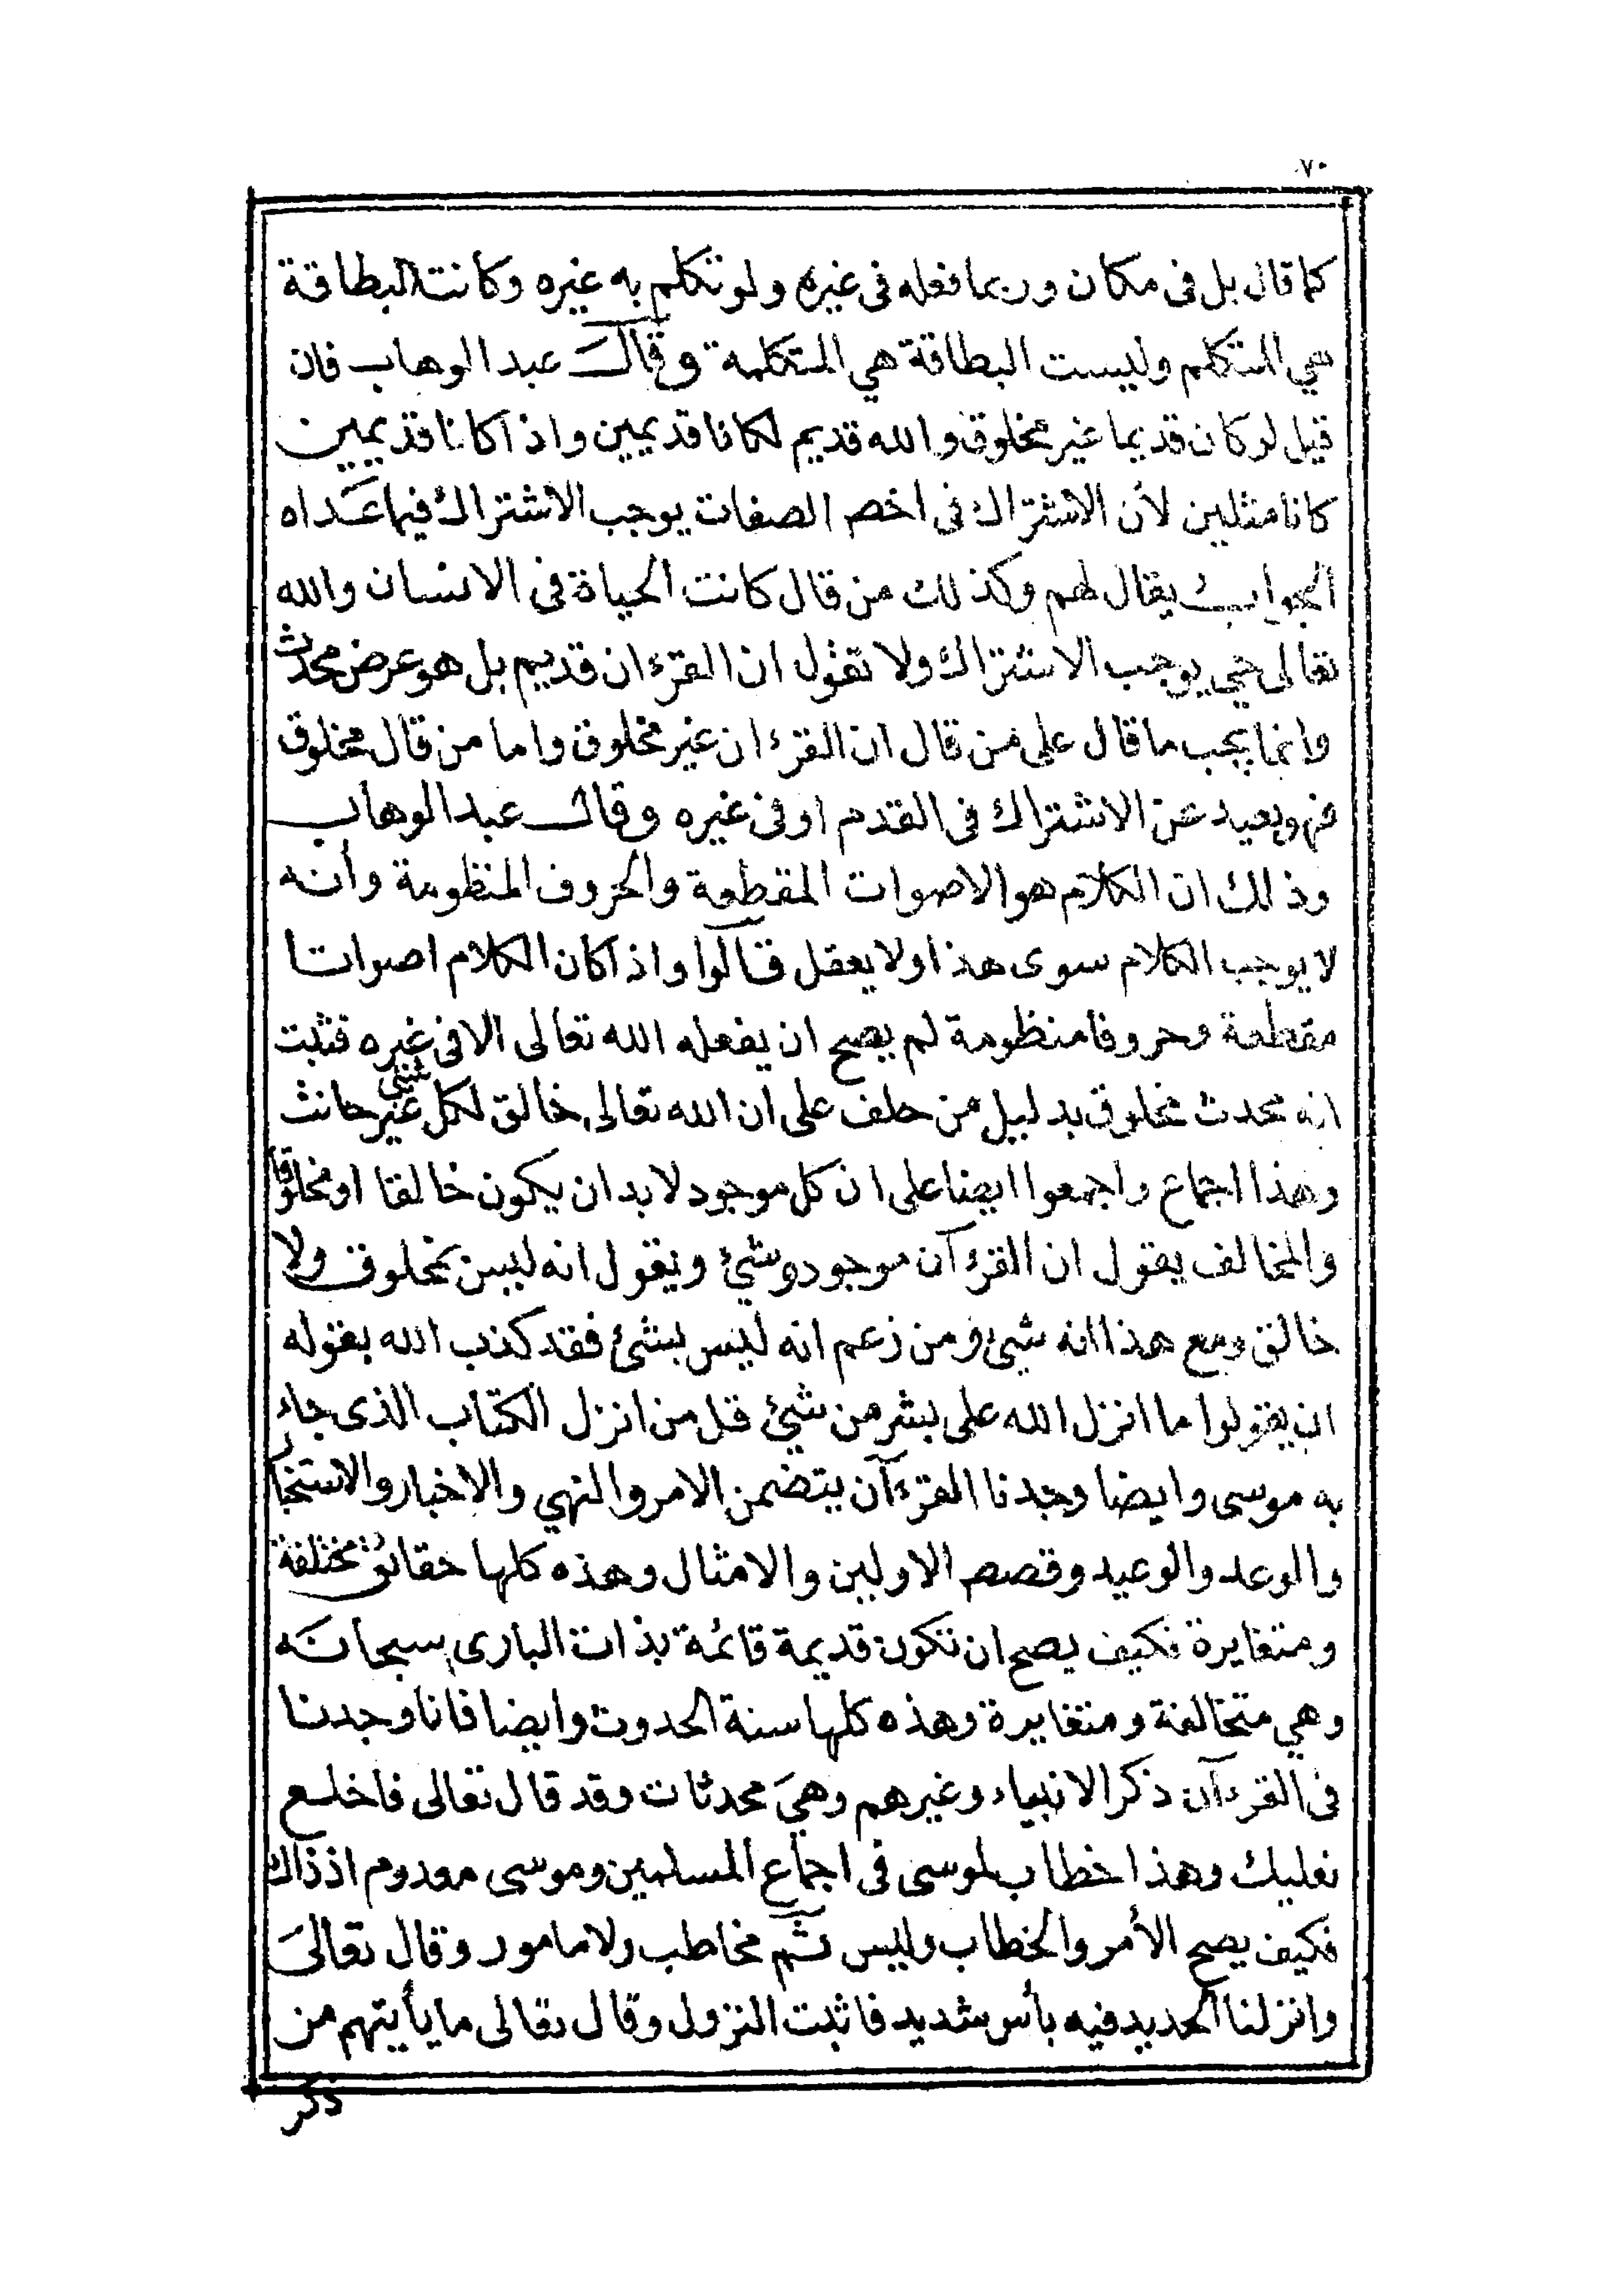 ٧٠
كما قال بل فى مكان وربما فعله فى غيره ولو تكلم به غيره وكانت البطاقة
هي المتكلم وليست البطاقة هي المتكلمة وقال عبد الوهاب فان
قيل لو كان قديما غير مخلوق والله قديم لكانا قديمين واذا كانا قديمين
كانا مثلين لأن الاشتراك فى اخص الصفات يوجب الاشتراك فيما عداه
الجواب يقال لهم وكذلك من قال كانت الحياة فى الانسان والله
تعالى حي يوجب الاشتراك ولا نقول ان القرءان قديم بل هو عرض محدث
وانما يجب ما قال على من قال ان القرءان غير مخلوق واما من قال مخلوق
فهو بعيد عن الاشتراك فى القدم او فى غيره وقال عبد الوهاب
وذلك ان الكلام هو الاصوات المقطعة والحروف المنظومة وأنه
لا يوجب الكلام سوى هذا ولا يعقل قالوا واذا كان الكلام اصواتا
مقطعة وحروفا منظومة لم يصح ان يفعله الله تعالى الا فى غيره فثبت
انه محدث مخلوق بدليل من حلف على ان الله تعالى خالق لكل شئ غير حانث
وهذا اجماع واجمعوا ايضا على ان كل موجود لا بد ان يكون خالقا او مخلوقا
والمخالف يقول ان القرءآن موجود وشئ ويقول انه ليس بمخلوق ولا
خالق ومع هذا انه شئ ومن زعم انه ليس بشئ فقد كذب الله بقوله
ان يقولوا ما انزل الله على بشر من شئ قل من انزل الكتاب الذى جاء
به موسى وايضا وجدنا القرءآن يتضمن الامر والنهي والاخبار والاستخبار
والوعد والوعيد وقصص الاولين والامثال وهذه كلها حقائق مختلفة
ومتغايرة فكيف يصح ان تكون قديمة قائمة بذات البارى سبحانه
وهي متخالفة ومتغايرة وهذه كلها سنة الحدوث وايضا فانا وجدنا
فى القرءآن ذكر الانبياء وغيرهم وهي محدثات وقد قال تعالى فاخلع
نعليك وهذا خطاب لموسى فى اجماع المسلمين وموسى معدوم اذ ذاك
فكيف يصح الأمر والخطاب وليس ثم مخاطب ولا مامور وقال تعالى
وانزلنا الحديد فيه بأس شديد فاثبت النزول وقال تعالى ما يأتيهم من
ذكر